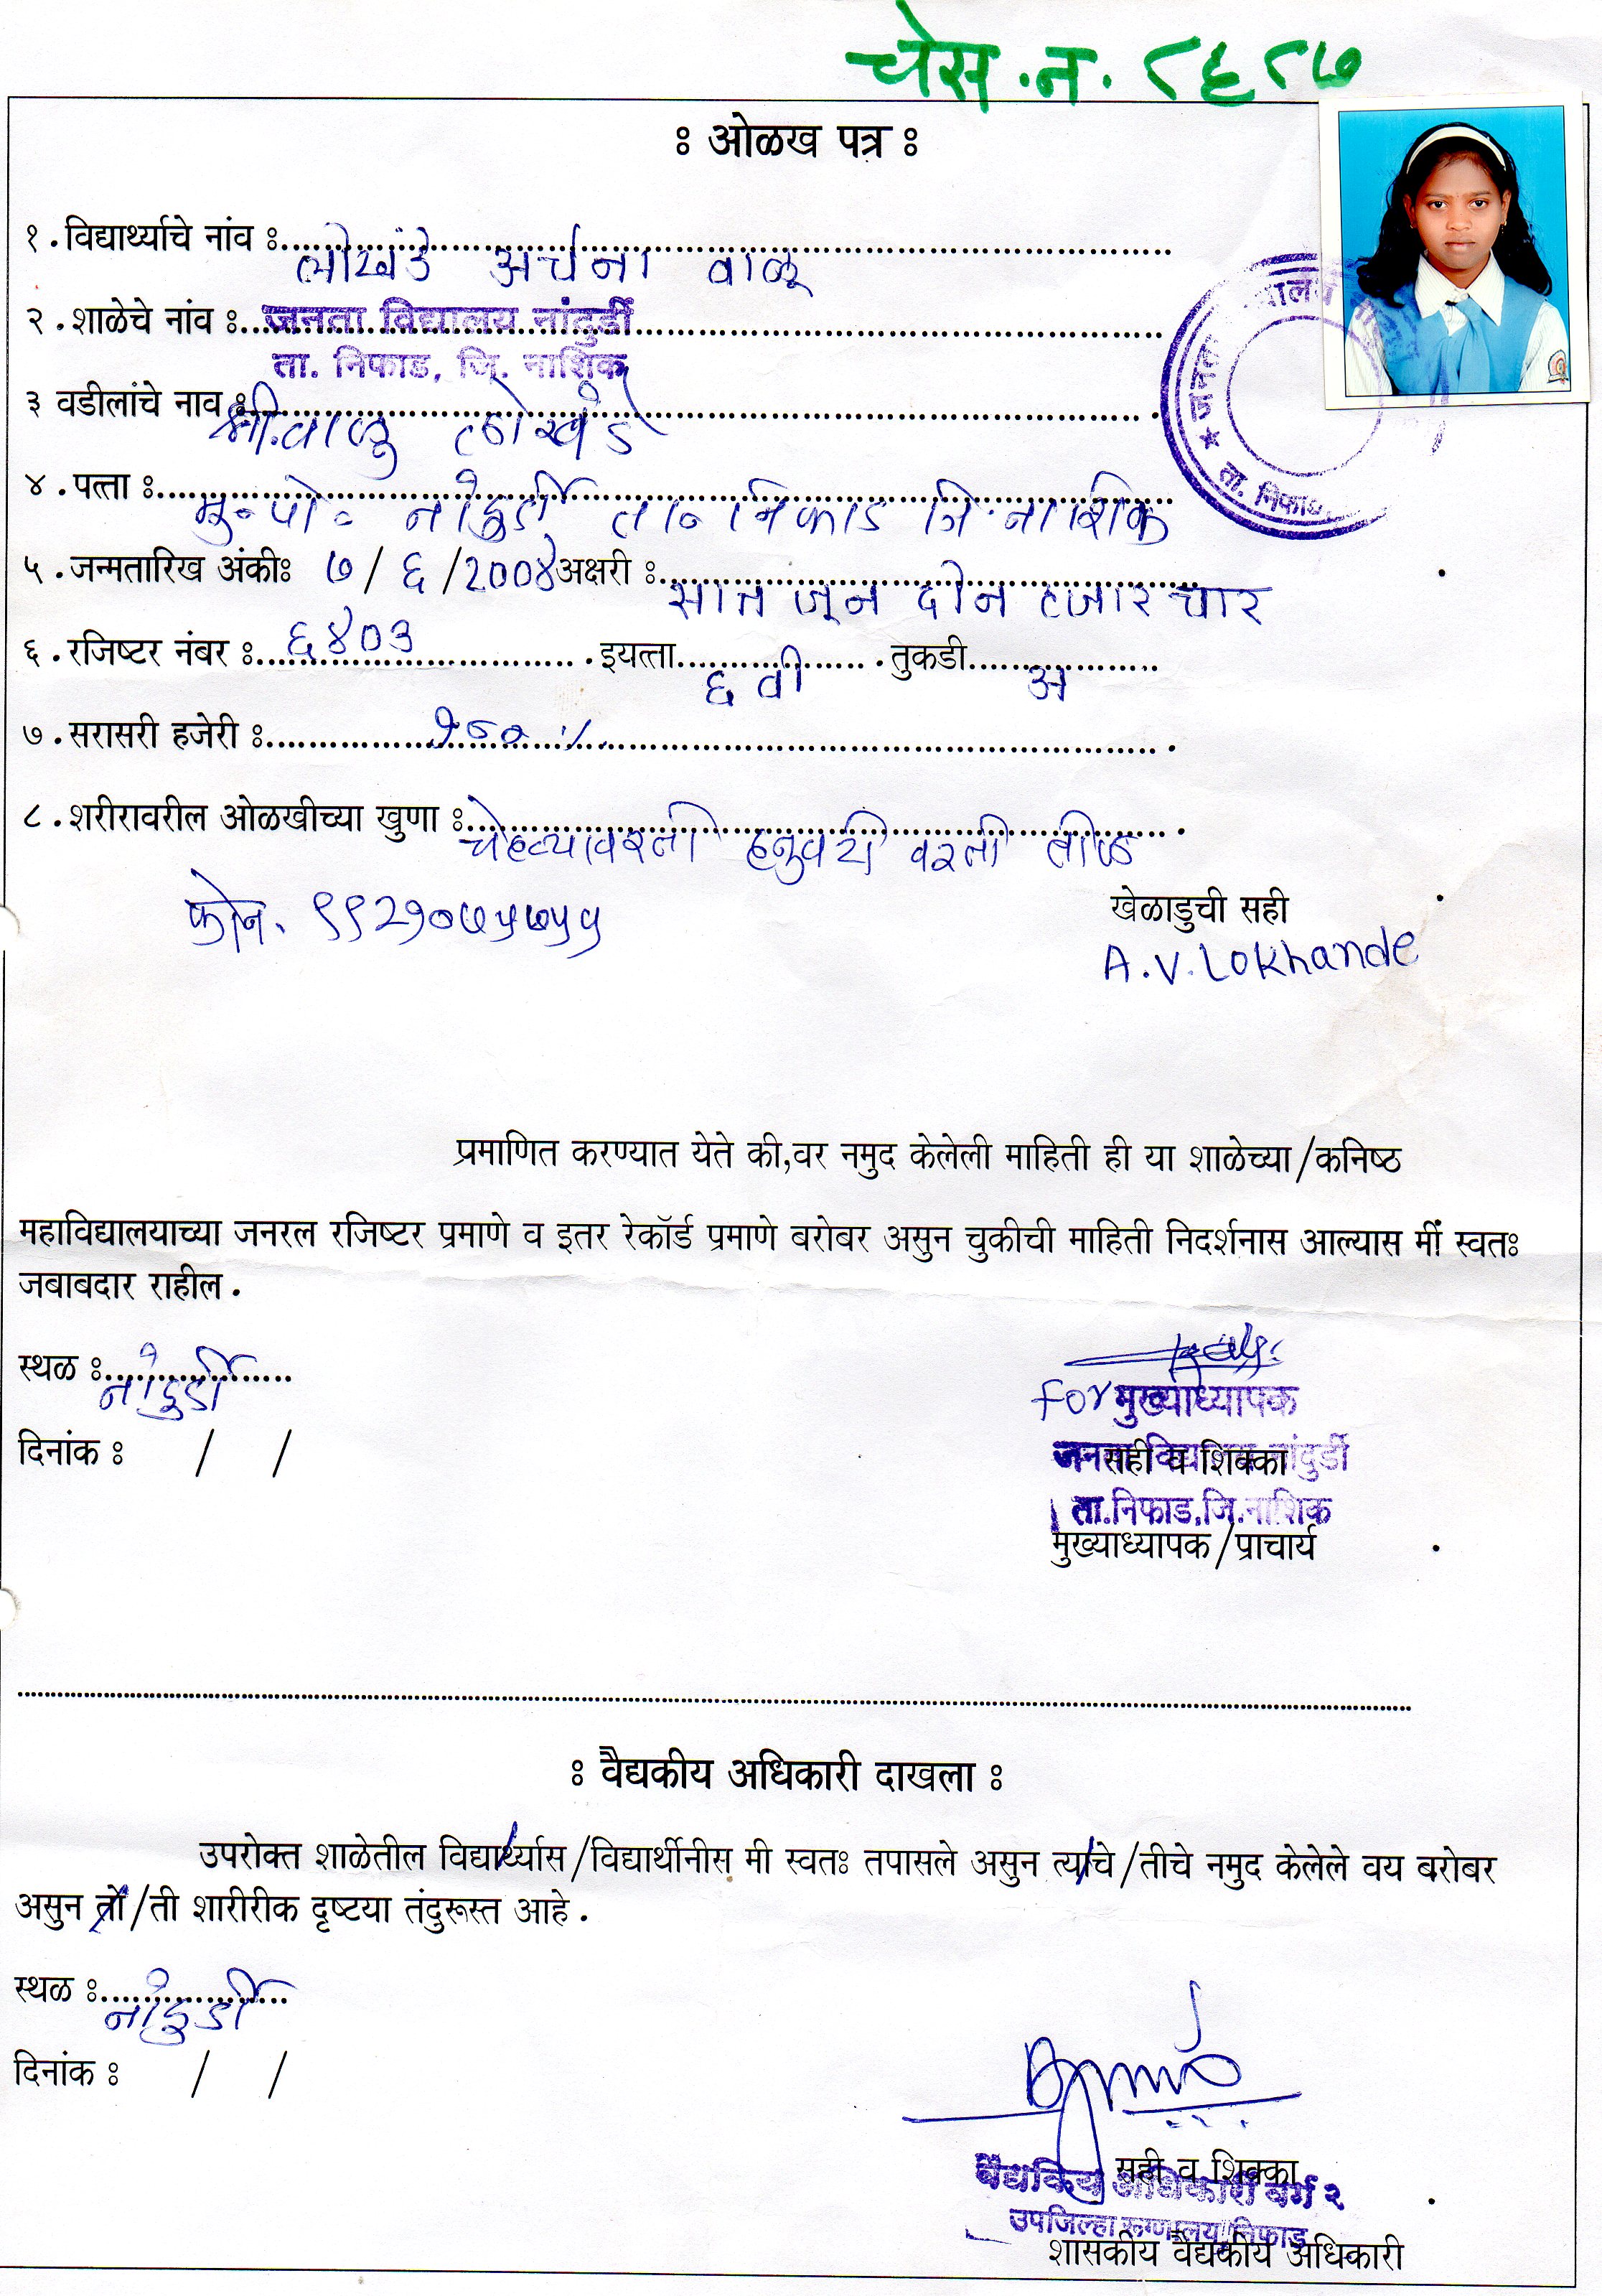 चेस.न. ८६८७
ः ओळख पत्र ः
१.विद्यार्थ्याचे नांव ः लोखंडे अर्चना वाळू
२.शाळेचे नांव ः जनता विद्यालय नांदुर्डी
ता. निफाड, जि. नाशिक
३ वडीलांचे नाव ः श्री.वाळू लोखंडे
४.पत्ता ः मु.पो. नांदुर्डी ता. निफाड जि.नाशिक
५.जन्मतारिख अंकीः ७/६/2००४ अक्षरी ः सात जून दोन हजार चार
६.रजिष्टर नंबर ः ६४०३ .इयत्ता ६ वी .तुकडी अ
७.सरासरी हजेरी ः १०० %
८.शरीरावरील ओळखीच्या खुणा ः चेहऱ्यावरती हनुवटी वरती तीळ
फोन. ९९२१०७५७५५
खेळाडुची सही
A.V.Lokhande
प्रमाणित करण्यात येते की,वर नमुद केलेली माहिती ही या शाळेच्या/कनिष्ठ
महाविद्यालयाच्या जनरल रजिष्टर प्रमाणे व इतर रेकॉर्ड प्रमाणे बरोबर असुन चुकीची माहिती निदर्शनास आल्यास मीं स्वतः
जबाबदार राहील.
स्थळ ः नांदुर्डी
For मुख्याध्यापक
दिनांक ः / /
जनता विद्यालय नांदुर्डी
सही व शिक्का
ता.निफाड,जि.नाशिक
मुख्याध्यापक/प्राचार्य
ः वैद्यकीय अधिकारी दाखला ः
उपरोक्त शाळेतील विद्यार्थ्यास/विद्यार्थीनीस मी स्वतः तपासले असुन त्याचे/तीचे नमुद केलेले वय बरोबर
असुन तो/ती शारीरीक दृष्टया तंदुरूस्त आहे.
स्थळ ः नांदुर्डी
दिनांक ः / /
सही व शिक्का
वैद्यकिय अधिकारी वर्ग २
उपजिल्हा रुग्णालय, निफाड
शासकीय वैद्यकीय अधिकारी